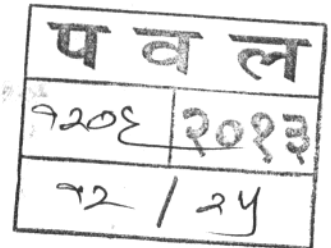 प व ल
१२०६ २०१३
१२ / २५